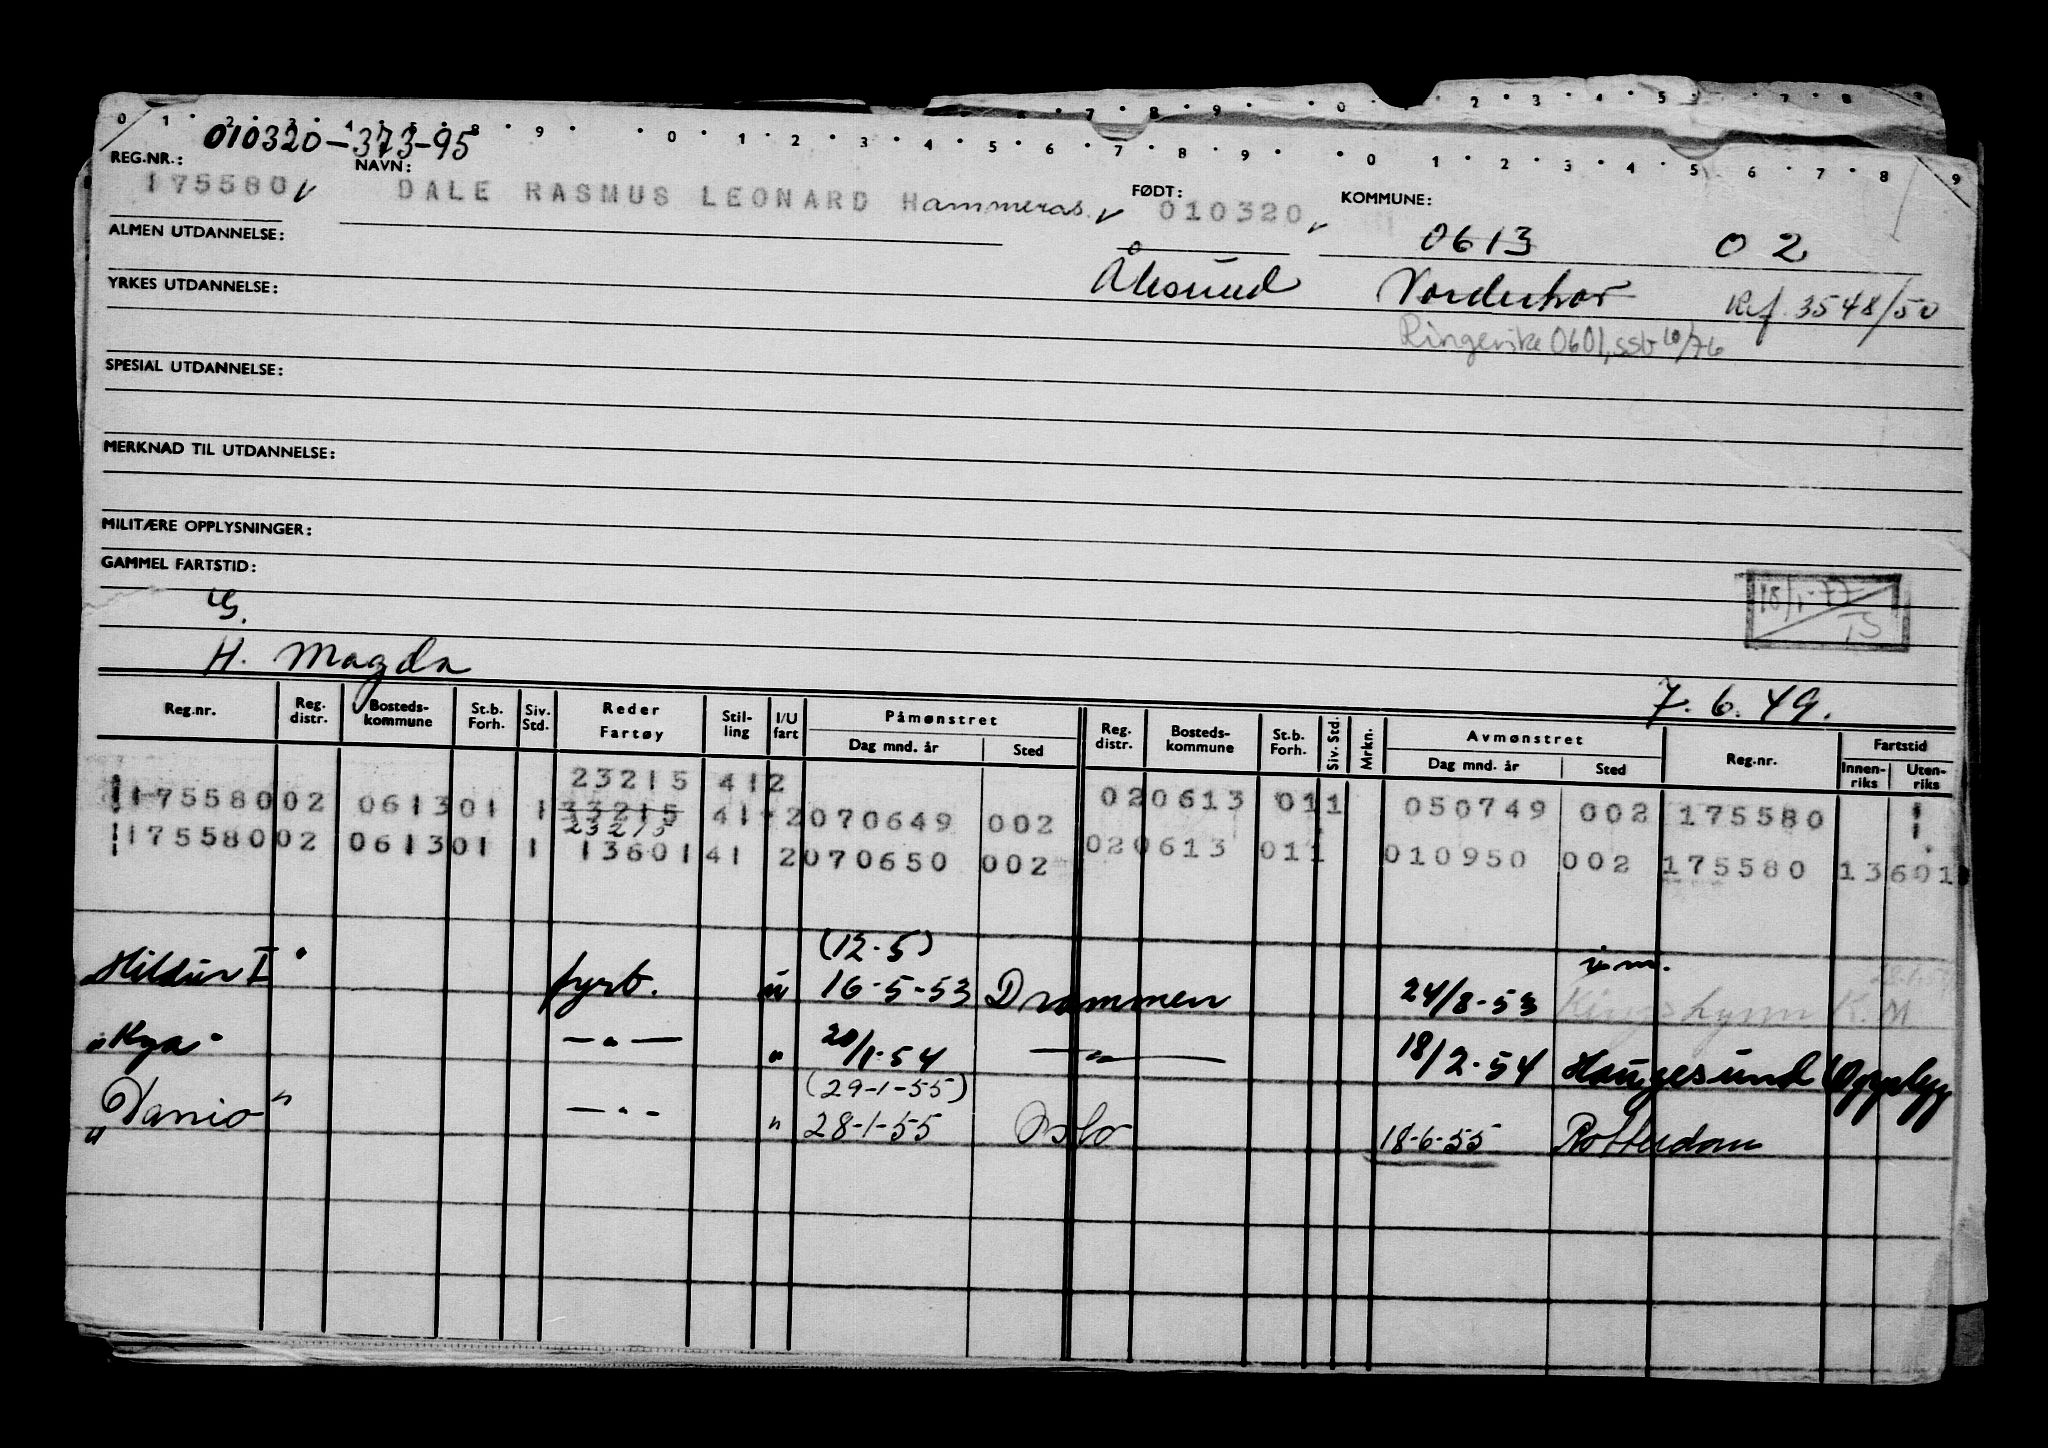 0 1 7 8 9 0 2 3 4 5 7 8
9 0 1 2 3 4 5 6 7 8 9 0 1 2 3 4 5 6 7 8 9
010320-373-95
REG.NR.: NAVN: FØDT: KOMMUNE:
175580 DALE RASMUS LEONARD Hammeras 010320 0613 02
ALMEN UTDANNELSE: Ålesund Norderhov Ref. 3548/50
YRKES UTDANNELSE: Ringerike 0601, ssb 10/76
SPESIAL UTDANNELSE:
MERKNAD TIL UTDANNELSE:
MILITÆRE OPPLYSNINGER:
GAMMEL FARTSTID:
18/1-77
G.
H. Magda 7.6.49.
Reg.nr. Reg. distr. Bosteds-kommune St.b. Forh. Siv. Std. Reder Fartøy Stil-ling I/U fart Påmønstret Dag mnd. år Sted Reg. distr. Bosteds-kommune St.b. Forh. Siv. Std. Mrkn. Avmønstret Dag mnd. år Sted Reg.nr. Fartstid Innen-riks Uten-riks
23215 412
175580 02 0613 01 1 33215 41 2 070649 002 02 0613 01 1 050749 002 175580 1
23215
175580 02 0613 01 1 13601 41 2 070650 002 02 0613 01 1 010950 002 175580 13601
(12-5) i.m.
"Hildur I" fyrb. u 16-5-53 Drammen 24/8-53 Kings Lynn K.M
"Kya" — " — " 20/1-54 — " — 18/2-54 Haugesund Opplegg
(29-1-55)
— " — " 28-1-55 Oslo 18-6-55 Rotterdam